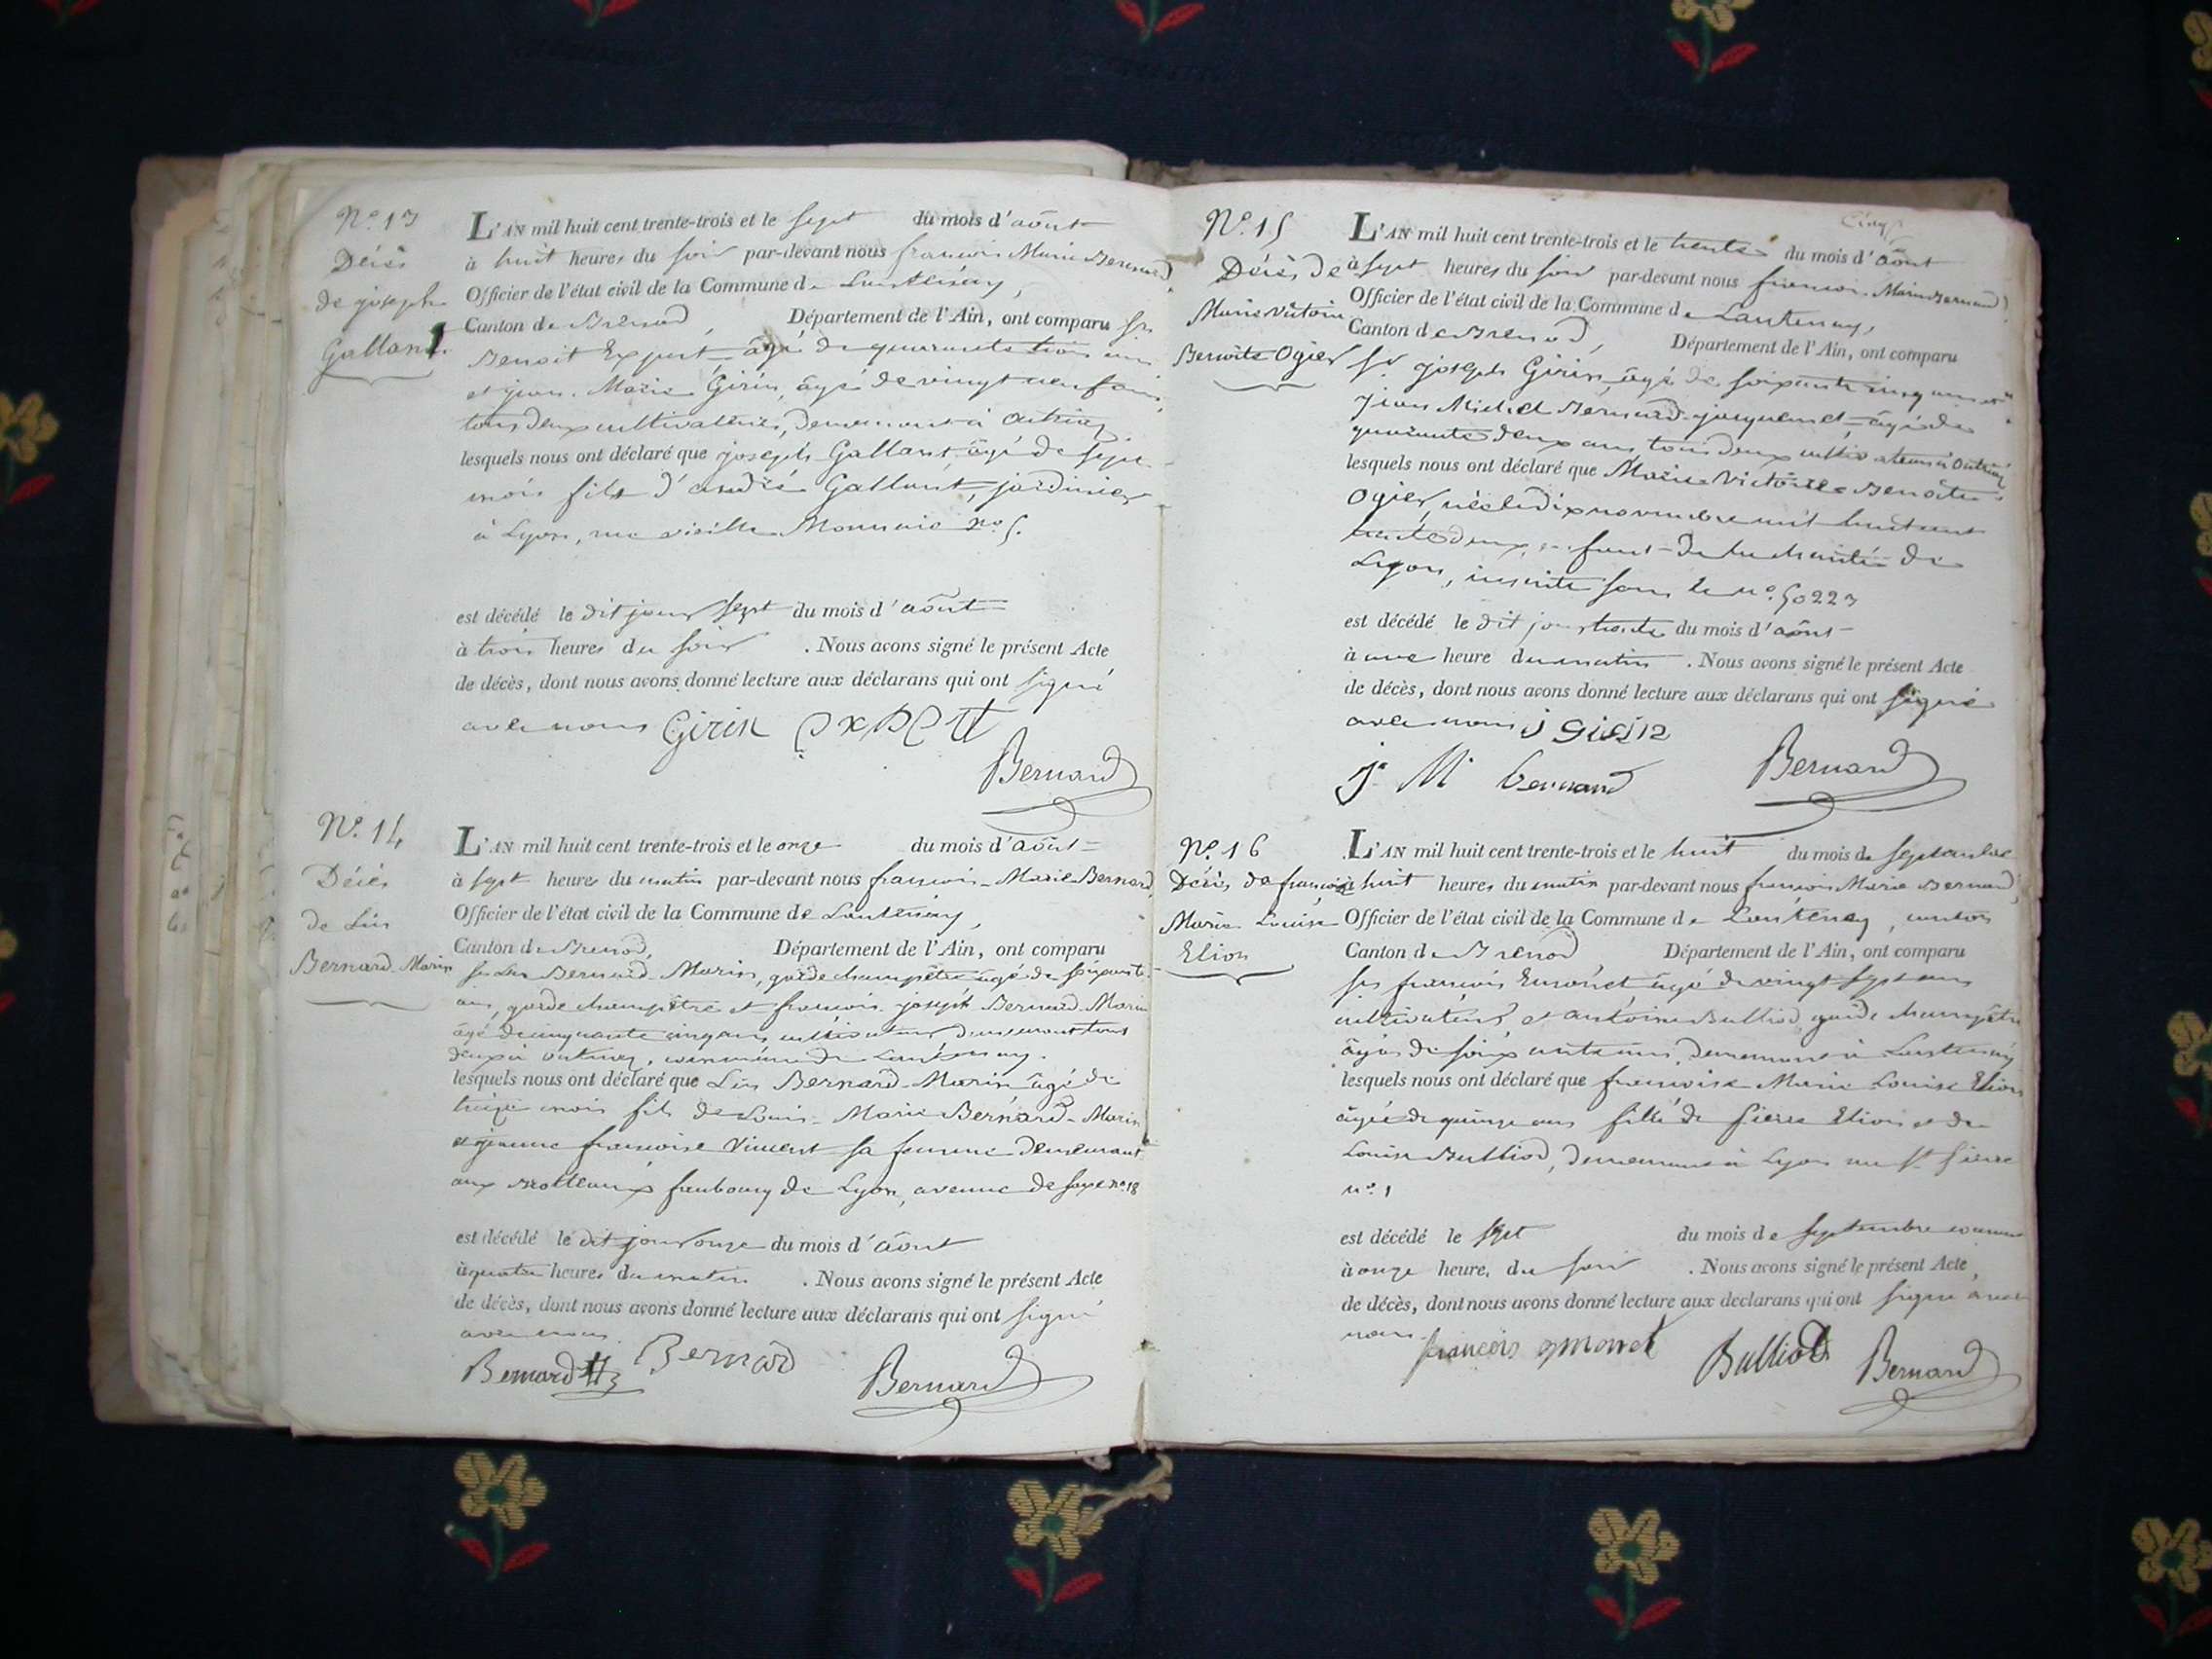 N.º 13
Décès
de joseph
Gallant.
L'AN mil huit cent trente-trois et le sept du mois d'août
à huit heures du soir par-devant nous françois Marie Bernard,
Officier de l'état civil de la Commune de Lantenay,
Canton de Brenod, Département de l'Ain, ont comparu
Benoit Expert, âgé de quarante trois ans
et jean-Marie Girin, âgé de vingt neuf ans,
tous deux cultivateurs, demeurant à
lesquels nous ont déclaré que joseph Gallant âgé de sept
mois fils d'andré Gallant, jardinier
à Lyon, rue vieille Monnaie nº 5.
est décédé le dit jour sept du mois d'août
à trois heures du soir. Nous avons signé le présent Acte
de décès, dont nous avons donné lecture aux déclarans qui ont signé
avec nous Girin Expert
Bernard
N.º 14
Décès
de Lin
Bernard-Marin
L'AN mil huit cent trente-trois et le onze du mois d'août
à sept heures du matin par-devant nous françois-Marie Bernard,
Officier de l'état civil de la Commune de Lantenay,
Canton de Brenod, Département de l'Ain, ont comparu
Bernard-Marin, garde champêtre âgé de soixante
ans, garde champêtre et françois joseph Bernard-Marin
âgé de cinquante cinq ans, cultivateur demeurant tous
deux à, commune de Lantenay.
lesquels nous ont déclaré que Lin Bernard-Marin âgé de
treize mois fils de Louis-Marie Bernard-Marin
et jeanne françoise Vincent sa femme demeurant
aux Brotteaux faubourg de Lyon, avenue de Saxe nº 18
est décédé le dit jour onze du mois d'août
à quatre heures du matin. Nous avons signé le présent Acte
de décès, dont nous avons donné lecture aux déclarans qui ont signé
avec nous.
Bernard Bernard Bernard
N.º 15
Décès de
Marie Victoire
Benoite Ogier
L'AN mil huit cent trente-trois et le trente du mois d'août
à sept heures du soir par-devant nous françois-Marie Bernard,
Officier de l'état civil de la Commune de Lantenay,
Canton de Brenod, Département de l'Ain, ont comparu
Sr joseph Girin, âgé de soixante cinq ans et
jean Michel Bernard-jacquemet, âgé de
quarante deux ans tous deux cultivateurs à
lesquels nous ont déclaré que Marie Victoire Benoite
Ogier, née le dix novembre mil huit cent
trente deux, enfant de la charité de
Lyon, inscrite sous le nº 50223
est décédé le dit jour trente du mois d'août
à une heure du matin. Nous avons signé le présent Acte
de décès, dont nous avons donné lecture aux déclarans qui ont signé
avec nous j Girin
j M bernard Bernard
Nº. 16
Décès de françoise
Marie Louise
Elion
L'AN mil huit cent trente-trois et le huit du mois de septembre
à huit heures du matin par-devant nous françois Marie Bernard,
Officier de l'état civil de la Commune de Lantenay, canton
Canton de Brenod Département de l'Ain, ont comparu
françois Emonet âgé de vingt sept ans
cultivateur, et antoine Bulliod, garde champêtre
âgé de soixante ans, demeurant à Lantenay
lesquels nous ont déclaré que françoise Marie Louise Elion
âgée de quinze ans fille de pierre Elion et de
Louise Bulliod, demeurant à Lyon rue St pierre
nº. 1
est décédé le sept du mois de septembre courant
à onze heure, du soir. Nous avons signé le présent Acte
de décès, dont nous avons donné lecture aux déclarans qui ont signé avec
nous.
françois emonet Bulliod Bernard